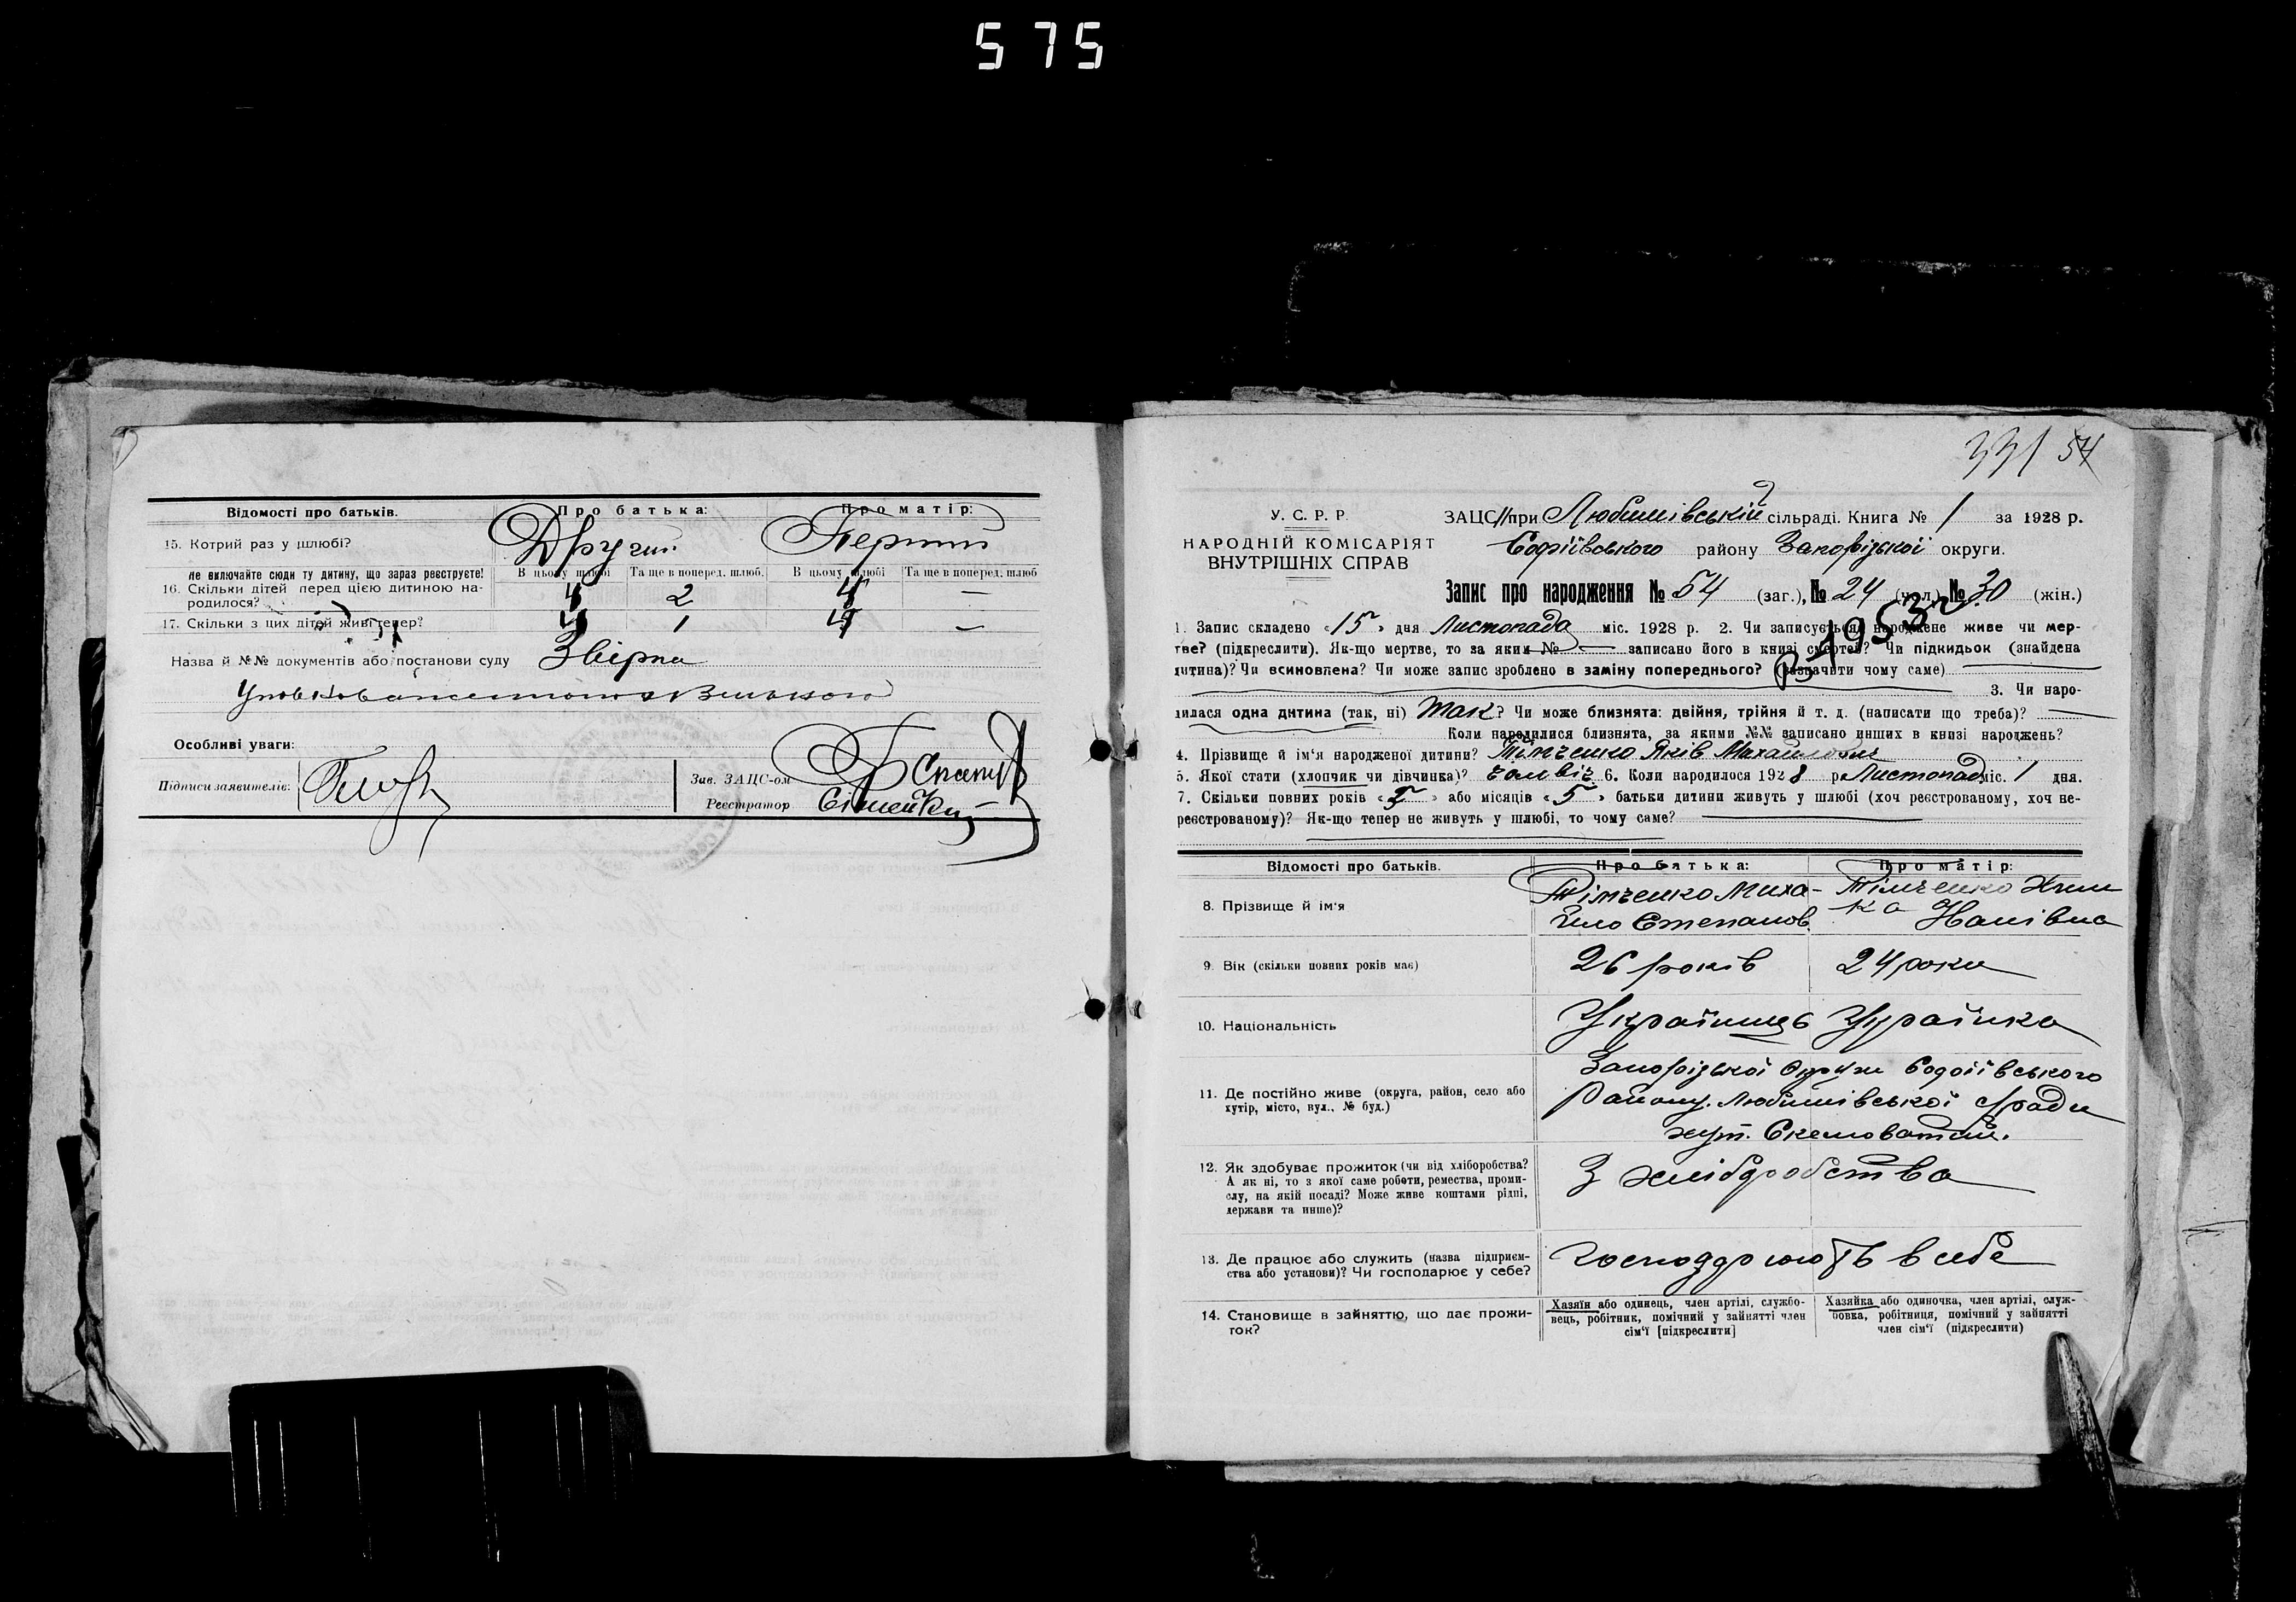 575
Відомості про батьків. Про батька: Про матір:
15. Котрий раз у шлюбі? Другий Перший
Не включайте сюди ту дитину, що зараз реєструєте! В цьому шлюбі Та ще в поперед. шлюб. В цьому шлюбі Та ще в поперед. шлюб
16. Скільки дітей перед цією дитиною на-
родилося? 2 —
17. Скільки з цих дітей живі тепер? 1 —
Назва й №№ документів або постанови суду Звірка
Особливі уваги:
Підписи заявителів:
Зав. ЗАЦС-ом
Реєстратор
331 54
У. С. Р. Р.
НАРОДНІЙ КОМІСАРІЯТ
ВНУТРІШНІХ СПРАВ
ЗАЦС при Любимівській сільраді. Книга № 1 за 1928 р.
Софіївського району Запорізької округи.
Запис про народження № 54 (заг.), № 24 (чол.) № 30 (жін.)
1953
1. Запис складено «15» дня Листопада міс. 1928 р. 2. Чи записується народжене живе чи мер-
тве? (підкреслити). Як-що мертве, то за яким № — записано його в книзі смертей? Чи підкидьок (знайдена
дитина)? Чи всиновлена? Чи може запис зроблено в заміну попереднього? (зазначити чому саме)
3. Чи наро-
дилася одна дитина (так, ні) Так? Чи може близнята: двійня, трійня й т. д. (написати що треба)? —
Коли народилися близнята, за якими №№ записано инших в книзі народжень?
4. Прізвище й ім'я народженої дитини? Тімченко Яків Михайлович
5. Якої стати (хлопчяк чи дівчинка)? чоловіч. 6. Коли народилося 1928 р. Листопад міс. 1 дня.
7. Скільки повних років « » або місяців «5» батьки дитини живуть у шлюбі (хоч реєстрованому, хоч не-
реєстрованому)? Як-що тепер не живуть у шлюбі, то чому саме?
Відомості про батьків. Про батька: Про матір:
8. Прізвище й ім'я Тімченко Миха- Тімченко
йло Степанов. Іванівна
9. Вік (скільки повних років має) 26 років 24 роки
10. Національність Українець Українка
11. Де постійно живе (округа, район, село або
хутір, місто, вул., № буд.)
Запорізької Округи Софіївського
Району. Любимівської с/ради
хут. Скелюватий.
12. Як здобуває прожиток (чи від хліборобства?
А як ні, то з якої саме роботи, ремества, проми-
слу, на якій посаді? Може живе коштами рідні,
держави та инше)?
З хліборобства
13. Де працює або служить (назва підприєм-
ства або установи)? Чи господарює у себе?
господарюють в себе
14. Становище в зайняттю, що дає прожи-
ток?
Хазяїн або одинець, член артілі, службо-
вець, робітник, помічний у зайнятті член
сім'ї [підкреслити]
Хазяйка або одиночка, член артілі, служ-
бовка, робітниця, помічний у зайнятті
член сім'ї (підкреслити)